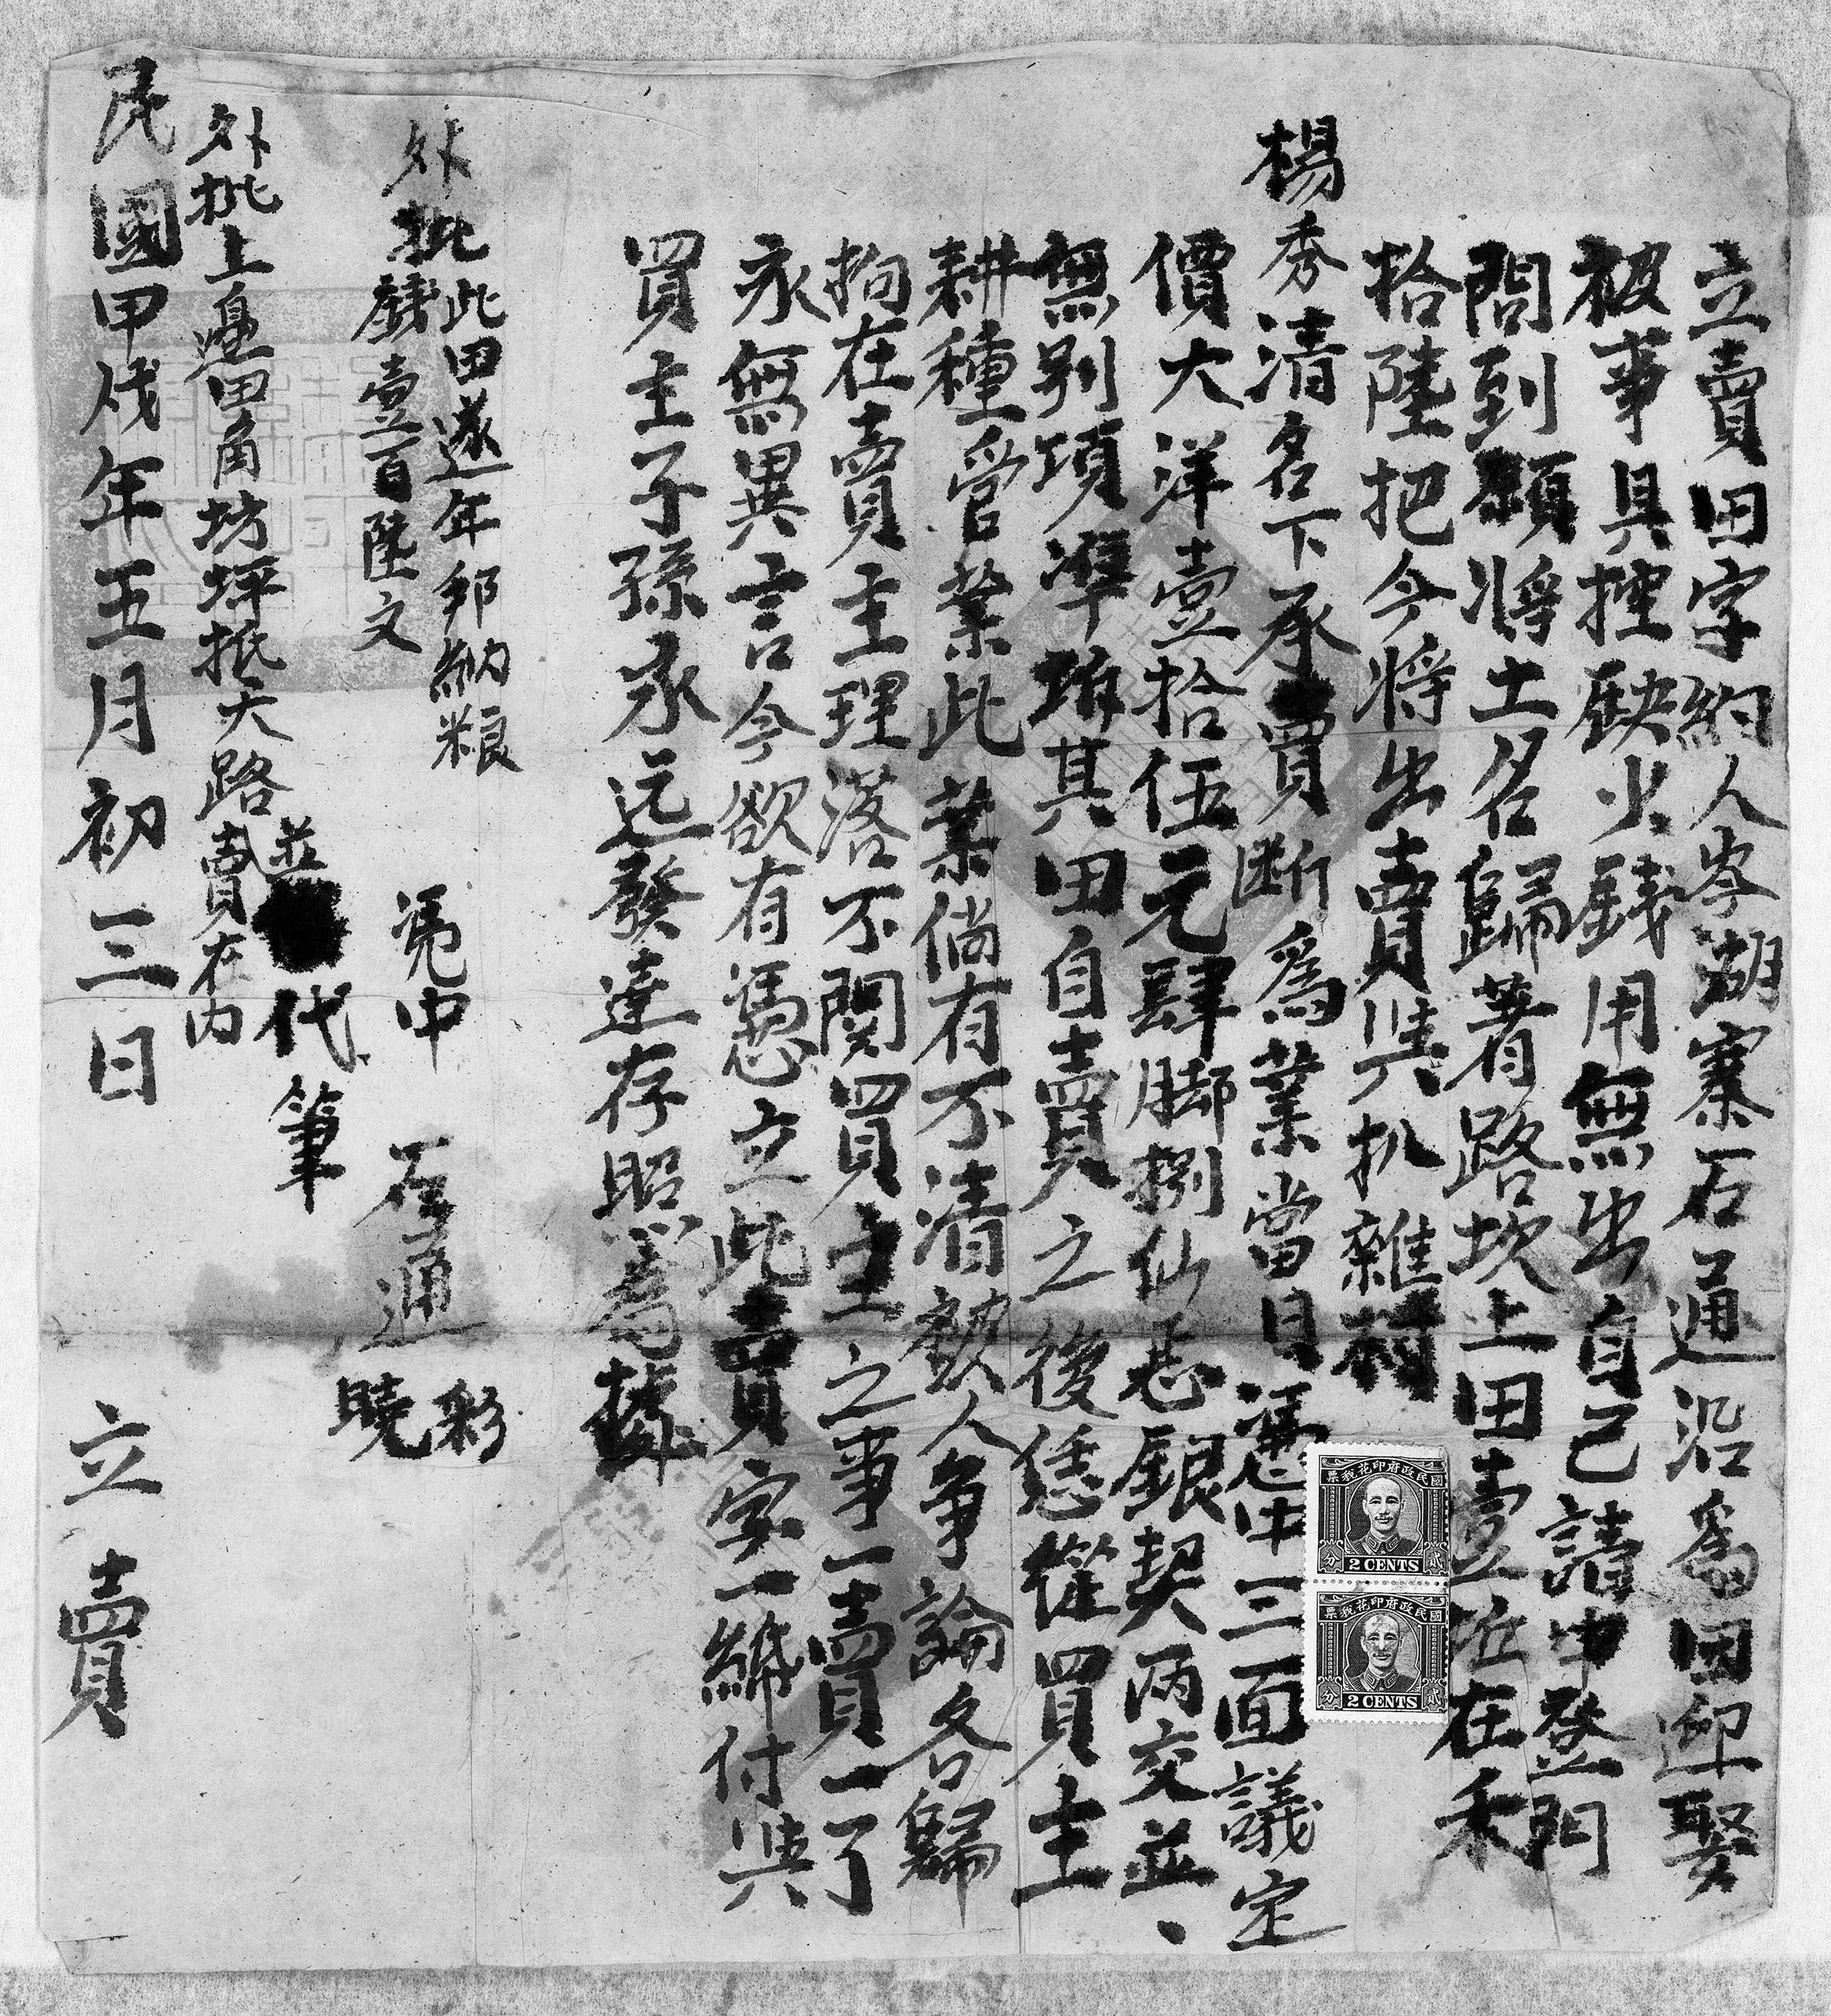 立賣田字約人岑湖寨石通沿爲因迎娶
被事具控缺少錢用無出自己請中登門
問到願將土名歸著路坎上田壹坵在禾
拾陸把今將出賣與扒雜村
楊秀清名下承買斷爲業當日憑中三面議定
價大洋壹拾伍元肆脚捌仙忎銀契兩交並、
無別項準折其田自賣之後恁從買主
耕種管業此業倘有不清親人爭論各歸
拘在賣主理落不関買主之事一賣一了
永無異言今欲有憑立此賣字一紙付與
買主子孫永远發達存照爲據
外批此田遂年邦納粮
錢壹百陸文
憑中 石通彩
曉
並代筆
外批上邊田角坊坪抵大路賣在内
民國甲戌年五月初三日 立賣
國民政府印花稅票
貳分
2 CENTS
國民政府印花稅票
貳分
2 CENTS